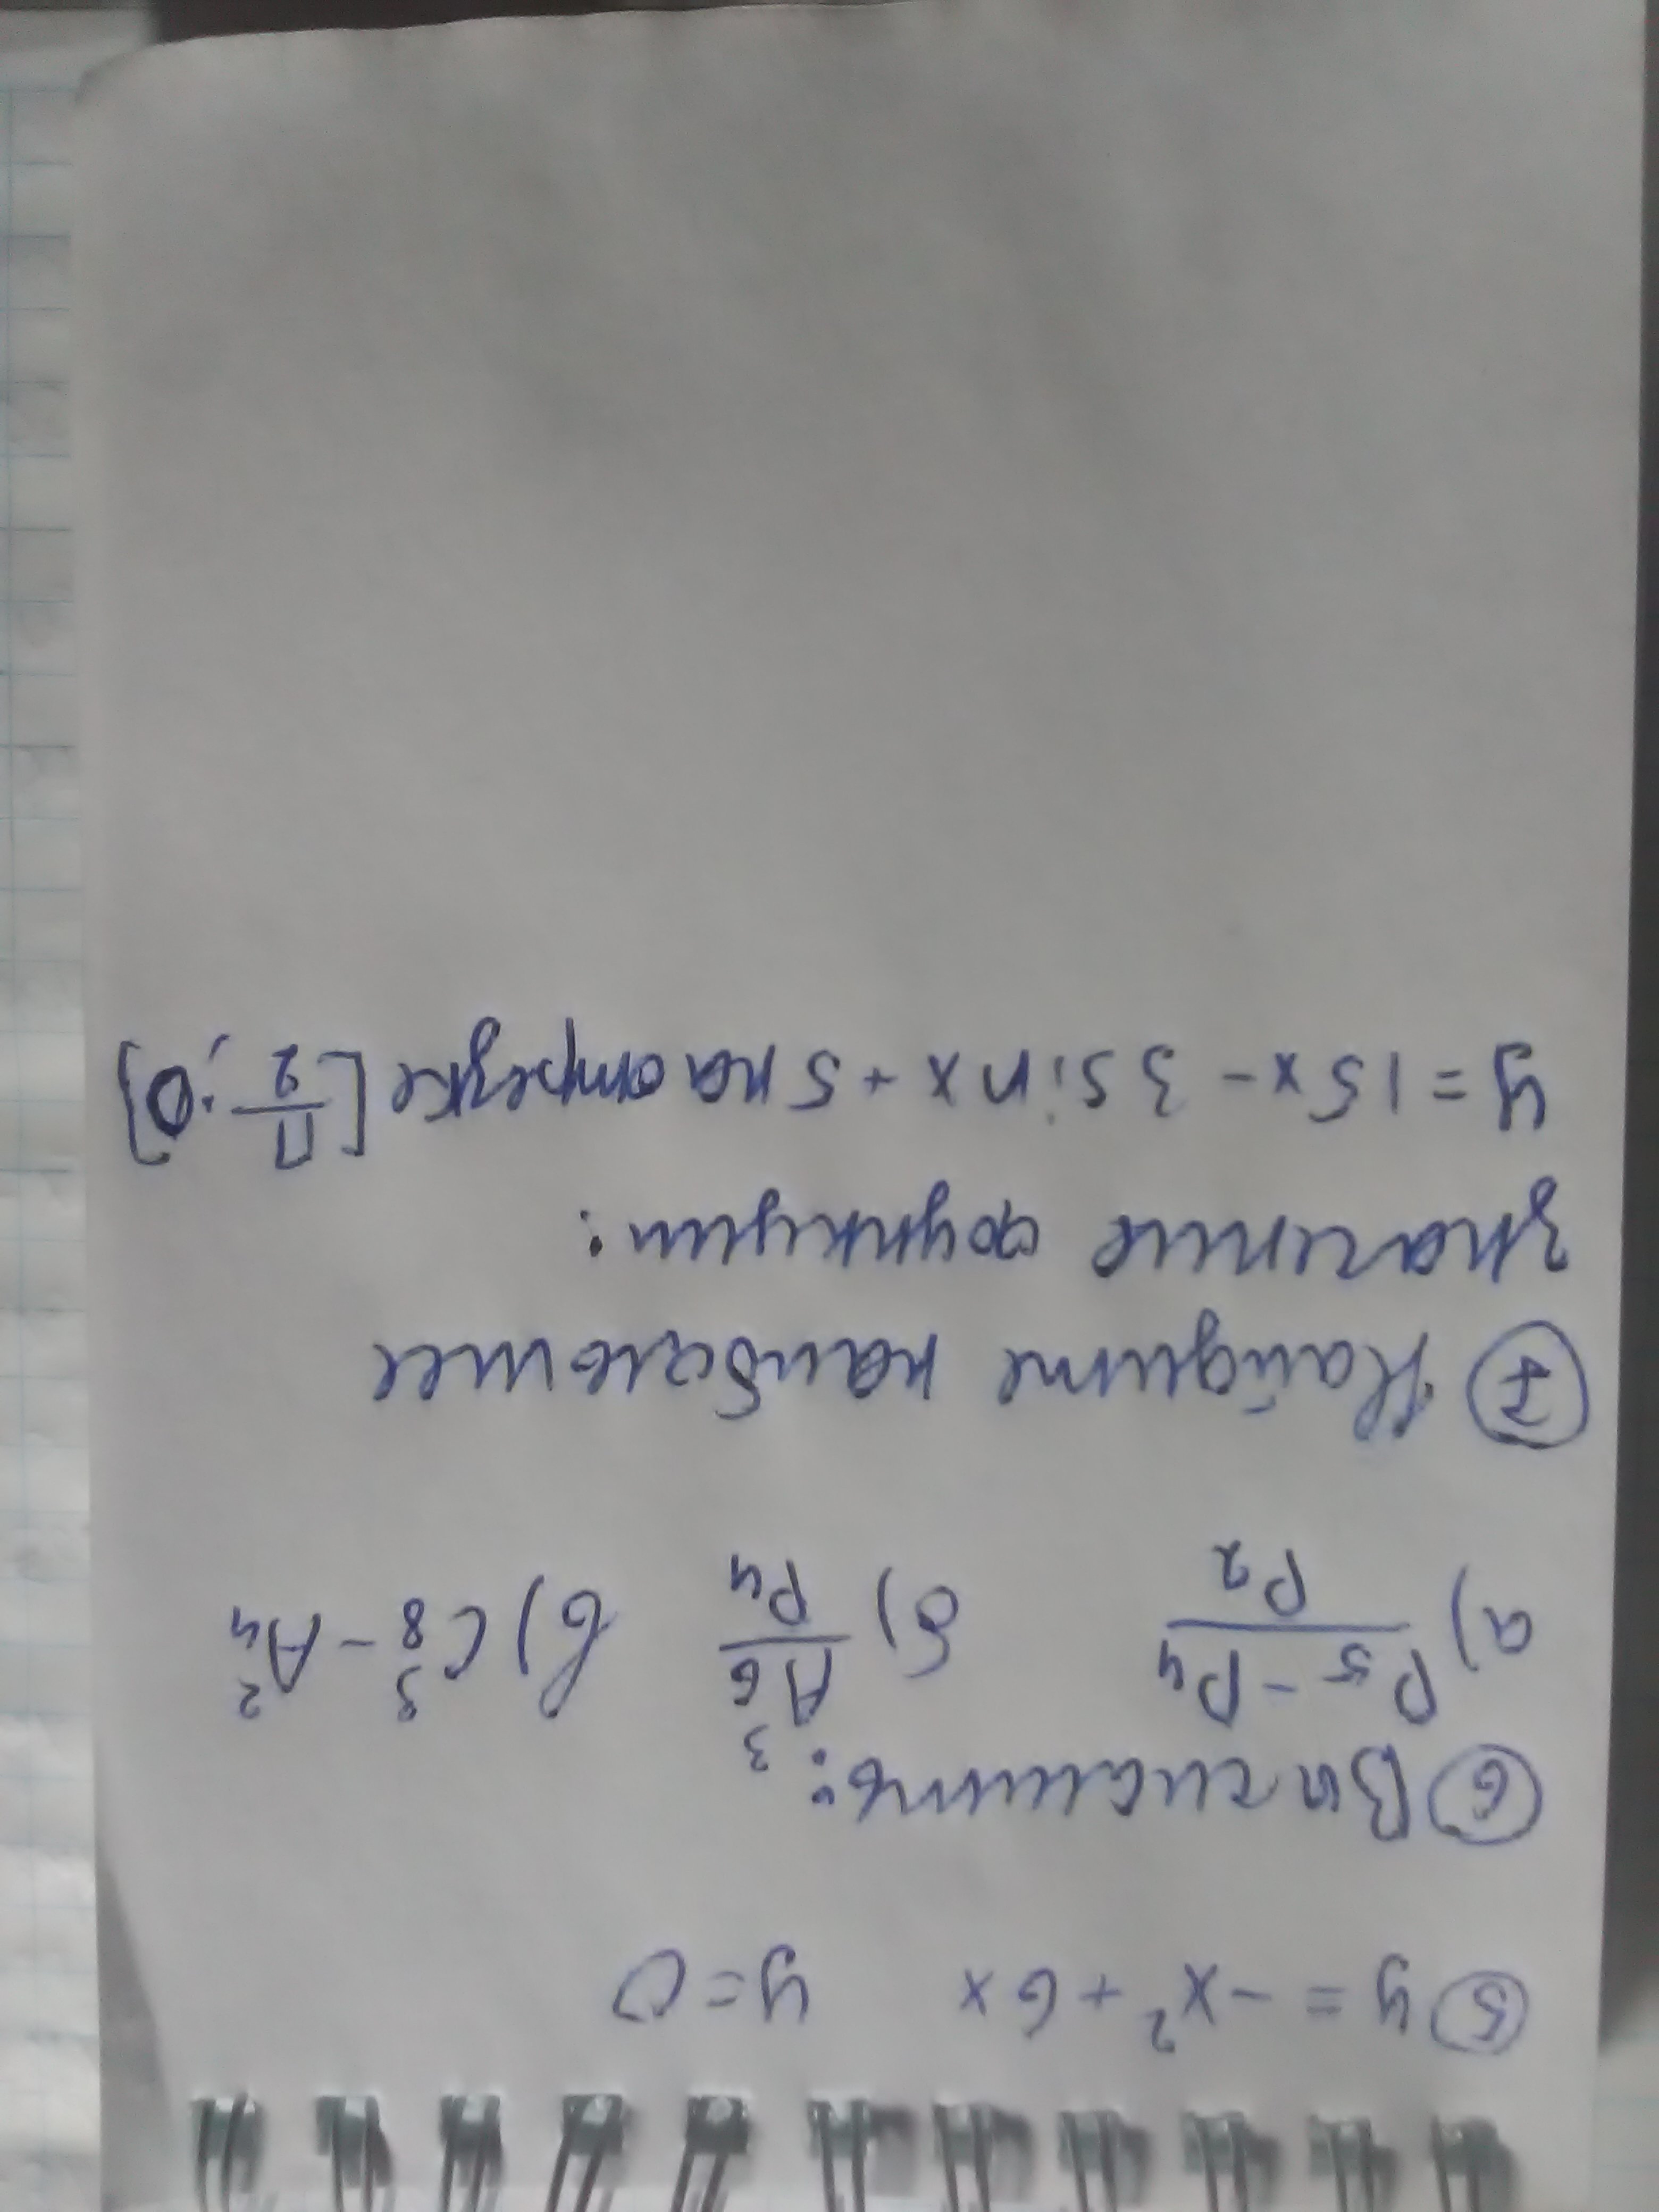 ⑤ y = -x² + 6x y = 0
⑥ Вычислить:
а) (P₅ - P₄)/P₂ б) A₆³/P₄ в) C₈³ - A₄²
⑦ Найдите наибольшее
значение функции:
y = 15x - 3sinx + 5 на отрезке [π/2; 0]